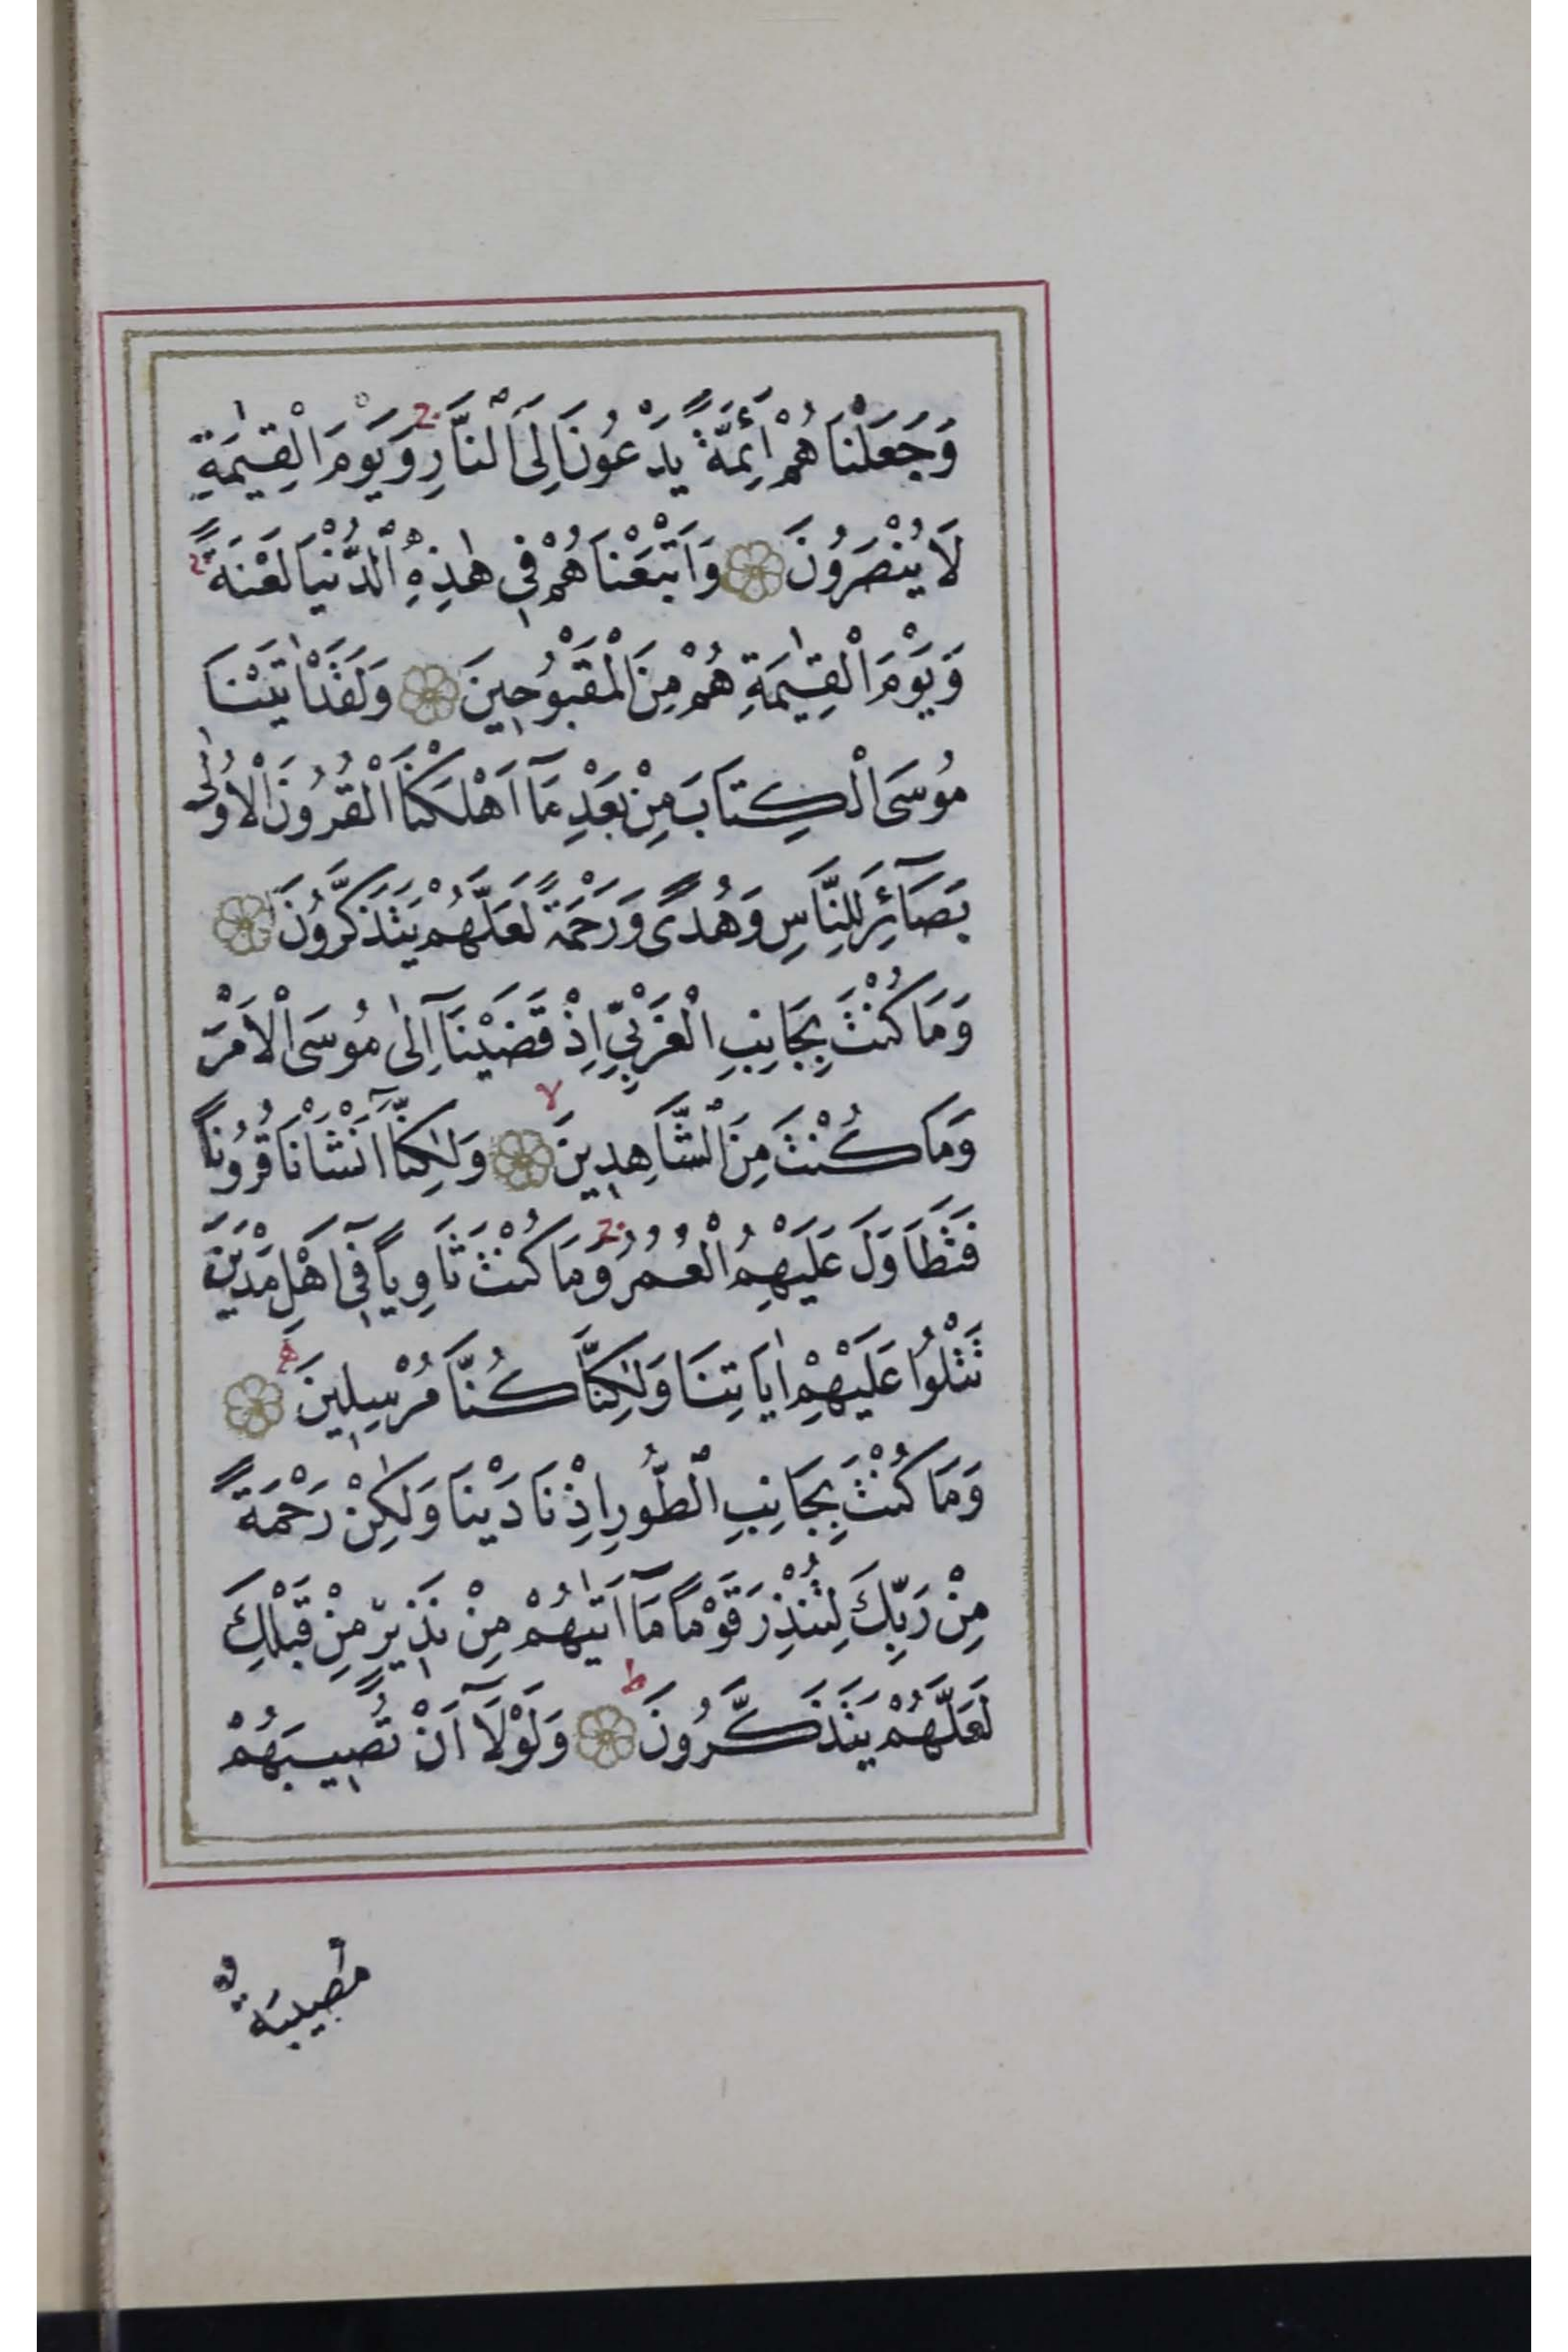 وَجَعَلْنَاهُمْ أَئِمَّةً يَدْعُونَ اِلَى النَّارِ ۚ وَيَوْمَ الْقِيٰمَةِ
لَا يُنْصَرُونَ وَاَتْبَعْنَاهُمْ فِي هٰذِهِ الدُّنْيَا لَعْنَةً ۚ
وَيَوْمَ الْقِيٰمَةِ هُمْ مِنَ الْمَقْبُوحِينَ وَلَقَدْ اٰتَيْنَا
مُوسَى الْكِتَابَ مِنْ بَعْدِ مَآ اَهْلَكْنَا الْقُرُونَ الْاُولٰى
بَصَآئِرَ لِلنَّاسِ وَهُدًى وَرَحْمَةً لَعَلَّهُمْ يَتَذَكَّرُونَ
وَمَا كُنْتَ بِجَانِبِ الْغَرْبِيِّ اِذْ قَضَيْنَآ اِلٰى مُوسَى الْاَمْرَ
وَمَا كُنْتَ مِنَ الشَّاهِدِينَ ۙ وَلٰكِنَّآ اَنْشَاْنَا قُرُونًا
فَتَطَاوَلَ عَلَيْهِمُ الْعُمُرُ ۚ وَمَا كُنْتَ ثَاوِيًا فِٓي اَهْلِ مَدْيَنَ
تَتْلُوا عَلَيْهِمْ اٰيَاتِنَا وَلٰكِنَّا كُنَّا مُرْسِلِينَ
وَمَا كُنْتَ بِجَانِبِ الطُّورِ اِذْ نَادَيْنَا وَلٰكِنْ رَحْمَةً
مِنْ رَبِّكَ لِتُنْذِرَ قَوْمًا مَآ اَتٰيهُمْ مِنْ نَذِيرٍ مِنْ قَبْلِكَ
لَعَلَّهُمْ يَتَذَكَّرُونَ ط وَلَوْلَآ اَنْ تُصِيبَهُمْ
مُصِيبَةٌ